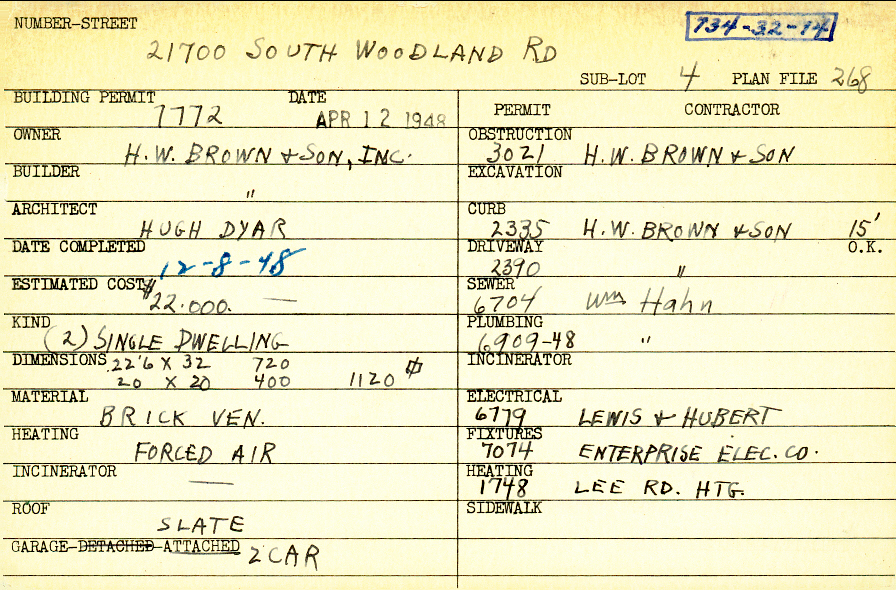 NUMBER-STREET
734-32-14
21700 SOUTH WOODLAND RD
SUB-LOT 4 PLAN FILE 268
BUILDING PERMIT 7772 DATE APR 12 1948
OWNER H.W. BROWN & SON, INC.
BUILDER "
ARCHITECT HUGH DYAR
DATE COMPLETED 12-8-48
ESTIMATED COST $22.000. —
KIND (2) SINGLE DWELLING
DIMENSIONS 22'6 X 32 720
20 X 20 400 1120
MATERIAL BRICK VEN.
HEATING FORCED AIR
INCINERATOR —
ROOF SLATE
GARAGE-DETACHED-ATTACHED 2 CAR
PERMIT CONTRACTOR
OBSTRUCTION 3021 H.W. BROWN & SON
EXCAVATION
CURB 2335 H.W. BROWN & SON 15'
DRIVEWAY 2390 " O.K.
SEWER 6704 Wm Hahn
PLUMBING 6909-48 "
INCINERATOR
ELECTRICAL 6779 LEWIS & HUBERT
FIXTURES 7074 ENTERPRISE ELEC. CO.
HEATING 1748 LEE RD. HTG.
SIDEWALK